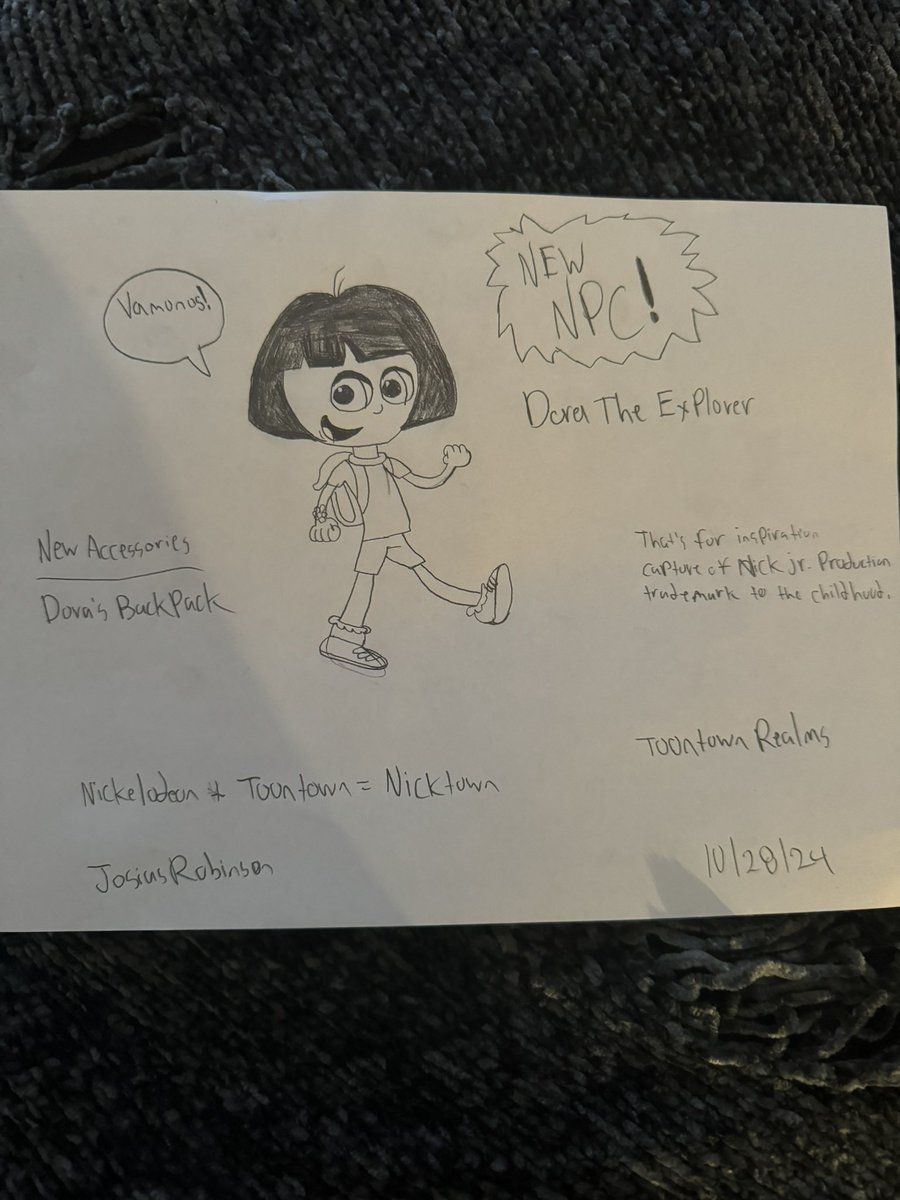 NEW
NPC!
Vamonos!
Dora The Explorer
New Accessories
Dora's BackPack
That's for inspiration
capture of Nick jr. Production
trademark to the childhood.
Toontown Realms
Nickelodeon + Toontown = Nicktown
Josius Robinson
10/28/24